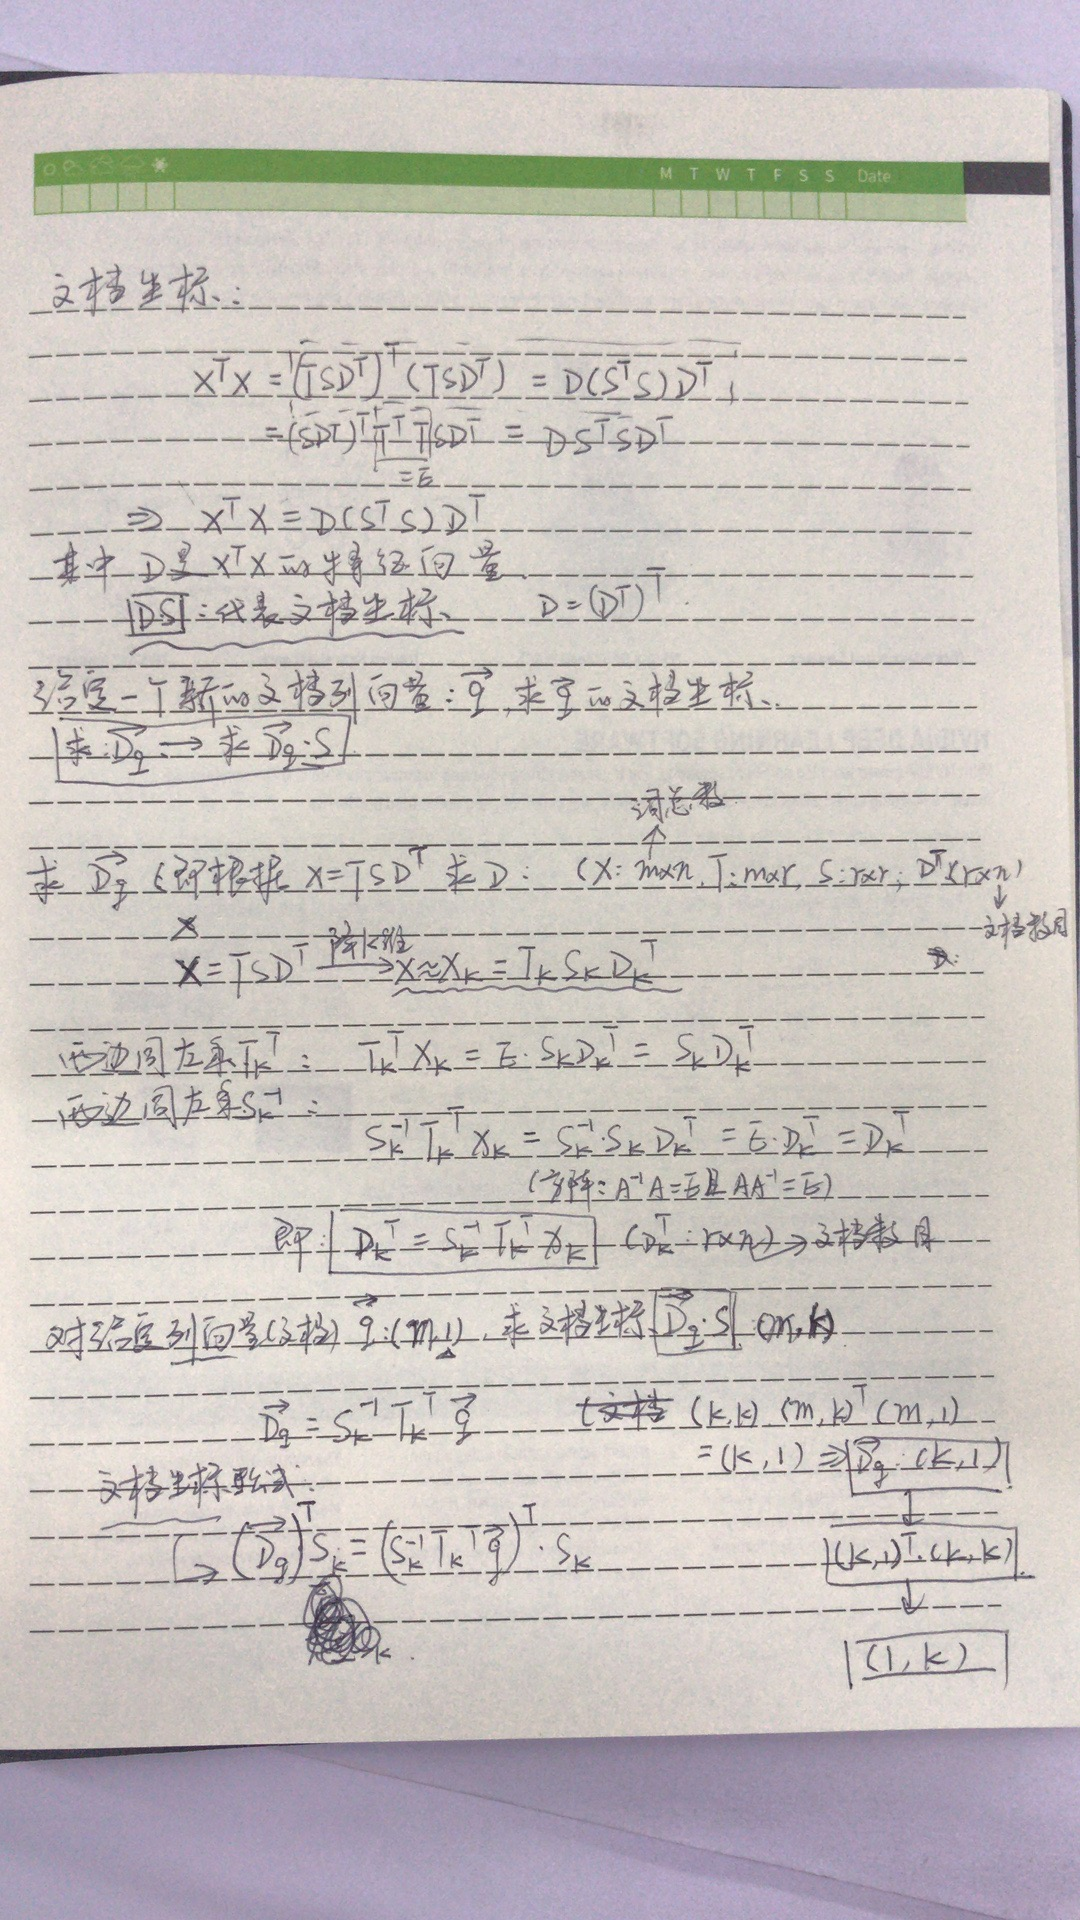 M T W T F S S Date
文档坐标:
XᵀX = (TSDᵀ)ᵀ(TSDᵀ) = D(SᵀS)Dᵀ
= (SDᵀ)ᵀTᵀTSDᵀ = DSᵀSDᵀ
=E
⇒ XᵀX = D(SᵀS)Dᵀ
其中 D是XᵀX的特征向量.
DS:代表文档坐标、 D=(Dᵀ)ᵀ.
给定一个新的文档列向量:q⃗,求q⃗的文档坐标、
求:D⃗q → 求 D⃗q·S
词总数
求 D⃗q (即根据 X=TSDᵀ 求 D: (X: m×n, T: m×r, S: r×r, Dᵀ(r×n)
文档数目
X=TSDᵀ 降k维→ X≈Xₖ = TₖSₖDₖᵀ
两边同左乘Tₖᵀ: TₖᵀXₖ = E·SₖDₖᵀ = SₖDₖᵀ
两边同左乘Sₖ⁻¹:
Sₖ⁻¹TₖᵀXₖ = Sₖ⁻¹·SₖDₖᵀ = E·Dₖᵀ = Dₖᵀ
(方阵: A⁻¹A=E且AA⁻¹=E)
即: Dₖᵀ = Sₖ⁻¹TₖᵀXₖ (Dₖᵀ: r×n) → 文档数目
对给定列向量(文档) q⃗:(m,1), 求文档坐标 D⃗q·S
D⃗q = Sₖ⁻¹Tₖᵀq⃗ (k,k) (m,k)ᵀ (m,1)
=(k,1) ⇒ D⃗q: (k,1)
文档坐标形式:
↳ (D⃗q)ᵀSₖ = (Sₖ⁻¹Tₖᵀq⃗)ᵀ·Sₖ (k,1)ᵀ·(k,k)
(1,k)